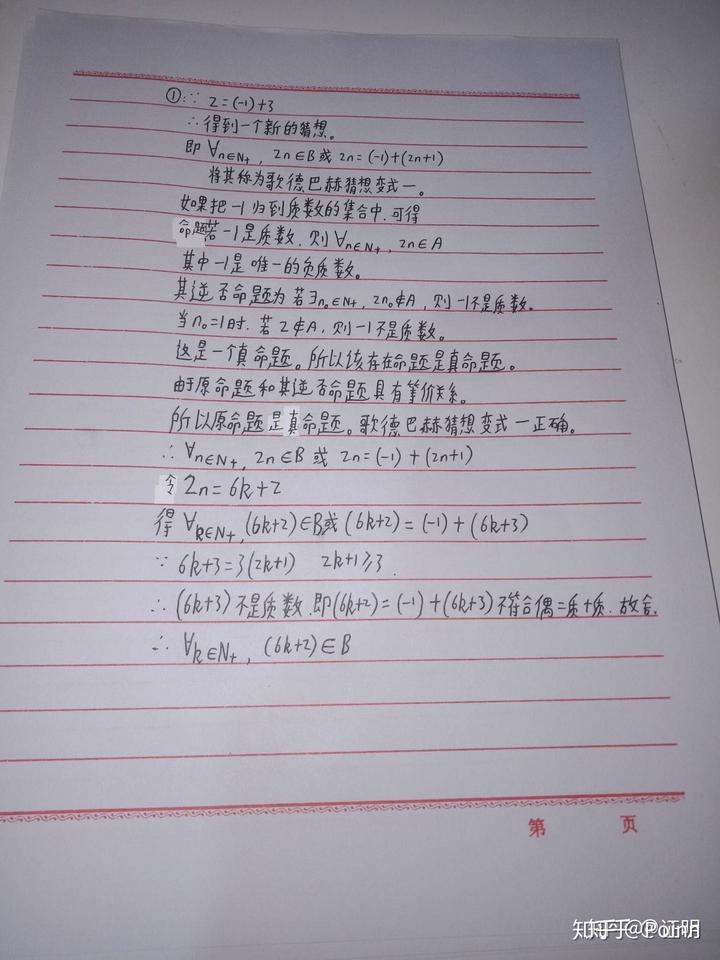 ①:∵ 2=(-1)+3
∴得到一个新的猜想。
即 ∀n∈N+, 2n∈B或 2n=(-1)+(2n+1)
将其称为歌德巴赫猜想变式一。
如果把-1归到质数的集合中.可得
命题若-1是质数.则∀n∈N+, 2n∈A
其中-1是唯一的负质数。
其逆否命题为 若∃n₀∈N+, 2n₀∉A, 则-1不是质数。
当n₀=1时.若2∉A,则-1不是质数。
这是一个真命题。所以该存在命题是真命题。
由于原命题和其逆否命题具有等价关系。
所以原命题是真命题。歌德巴赫猜想变式一正确。
∴ ∀n∈N+, 2n∈B 或 2n=(-1)+(2n+1)
令 2n=6k+2
得 ∀k∈N+, (6k+2)∈B或(6k+2)=(-1)+(6k+3)
∵ 6k+3=3(2k+1) 2k+1≥3.
∴ (6k+3)不是质数.即(6k+2)=(-1)+(6k+3)不符合偶=质+质.故舍.
∴ ∀k∈N+, (6k+2)∈B
第 页